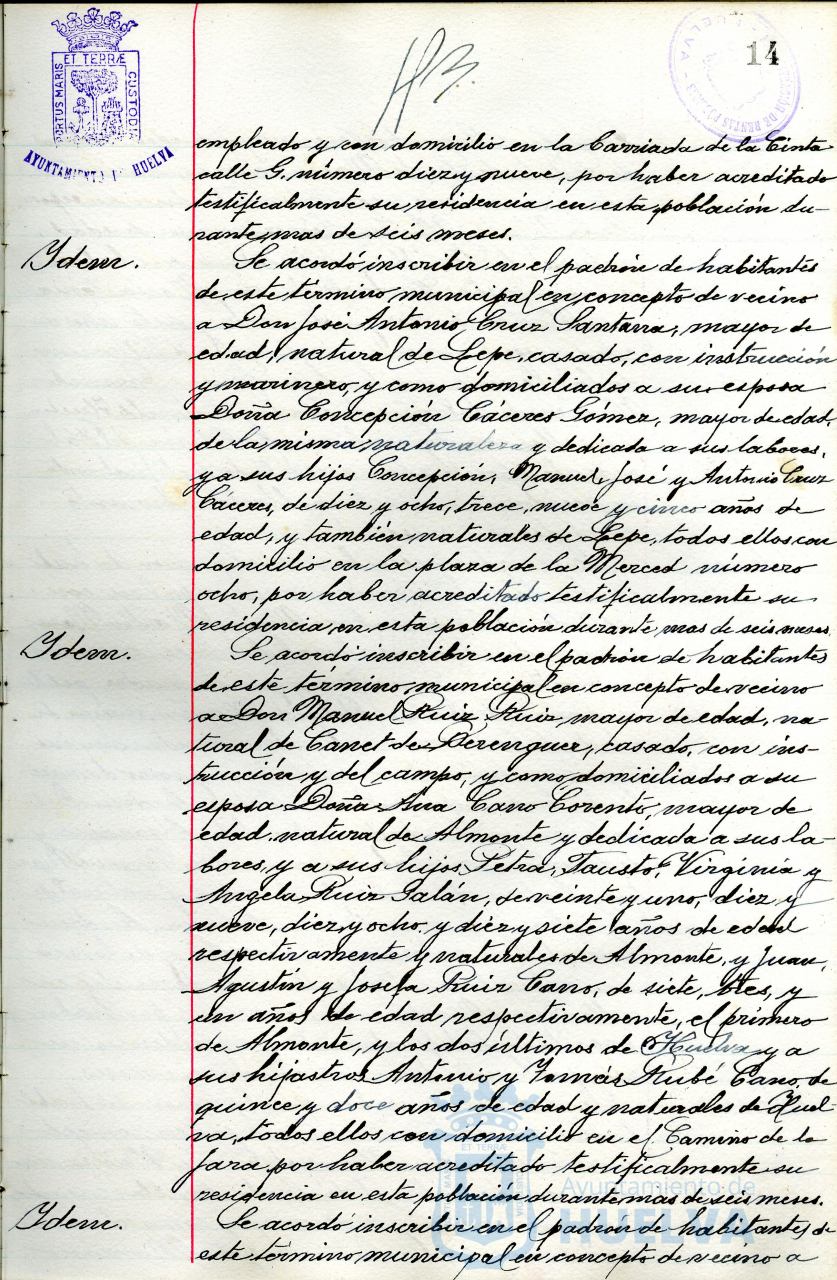 14
PORTUS MARIS
ET TERRÆ
CUSTODIA
AYUNTAMIENTO DE HUELVA
empleado y con domicilio en la Barriada de la Cinta
calle G. número diez y nueve, por haber acreditado
testificalmente su residencia en esta población du-
rante mas de seis meses.
Ydem.
Se acordó inscribir en el padrón de habitantes
de este término municipal en concepto de vecino
a Don José Antonio Cruz Santana, mayor de
edad, natural de Lepe, casado, con instrucción
y marinero, y como domiciliados a su esposa
Doña Concepción Cáceres Gómez, mayor de edad,
de la misma naturaleza y dedicada a sus labores,
y a sus hijos Concepción, Manuel, José y Antonio Cruz
Cáceres, de diez y ocho, trece, nueve y cinco años de
edad, y también naturales de Lepe, todos ellos con
domicilio en la plaza de la Merced número
ocho, por haber acreditado testificalmente su
residencia en esta población durante mas de seis meses.
Ydem.
Se acordó inscribir en el padrón de habitantes
de este término municipal en concepto de vecino
a Don Manuel Ruiz Ruiz, mayor de edad, na-
tural de Canet de Berenguer, casado, con ins-
trucción y del campo, y como domiciliados a su
esposa Doña Ana Cano Corento, mayor de
edad, natural de Almonte y dedicada a sus la-
bores, y a sus hijos Petra, Fausto, Virginia y
Angela Ruiz Galán, de veinte y uno, diez y
nueve, diez y ocho y diez y siete años de edad
respectivamente y naturales de Almonte, y Juan,
Agustín y Josefa Ruiz Cano, de siete, tres, y
un años de edad respectivamente, el primero
de Almonte, y los dos últimos de Huelva y a
sus hijastros Antonio y Tomás Rubé Cano, de
quince y doce años de edad y naturales de Huel-
va, todos ellos con domicilio en el Camino de la
Jara por haber acreditado testificalmente su
residencia en esta población durante mas de seis meses.
Ydem.
Se acordó inscribir en el padrón de habitantes de
este término municipal en concepto de vecino a
Ayuntamiento de
HUELVA